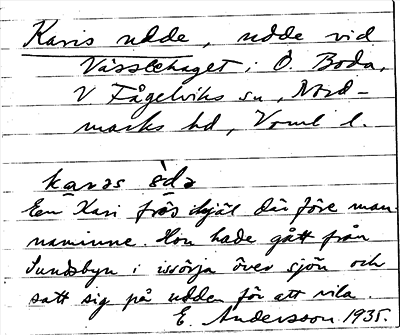 Karis udde, udde vid
Vassehaget i Ö. Boda,
V Fågelviks sn, Nord-
marks hd, Vrml l.
karas ùdə
En Kari frös ihjäl där före man-
naminne. Hon hade gått från
Sundsbyn i issörja över sjön och
satt sig på udden för att vila.
E. Andersson 1935.